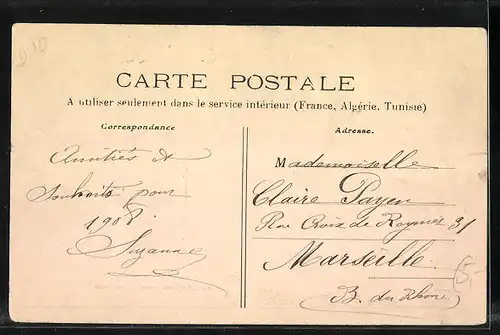 CARTE POSTALE
A utiliser seulement dans le service intérieur (France, Algérie, Tunisie)
Correspondance
Amitiés et
Souhaits pour
1908
Suzanne
Adresse.
Mademoiselle
Claire Payen
Rue Croix de Regnier 31
Marseille.
B. du Rhône
5,-